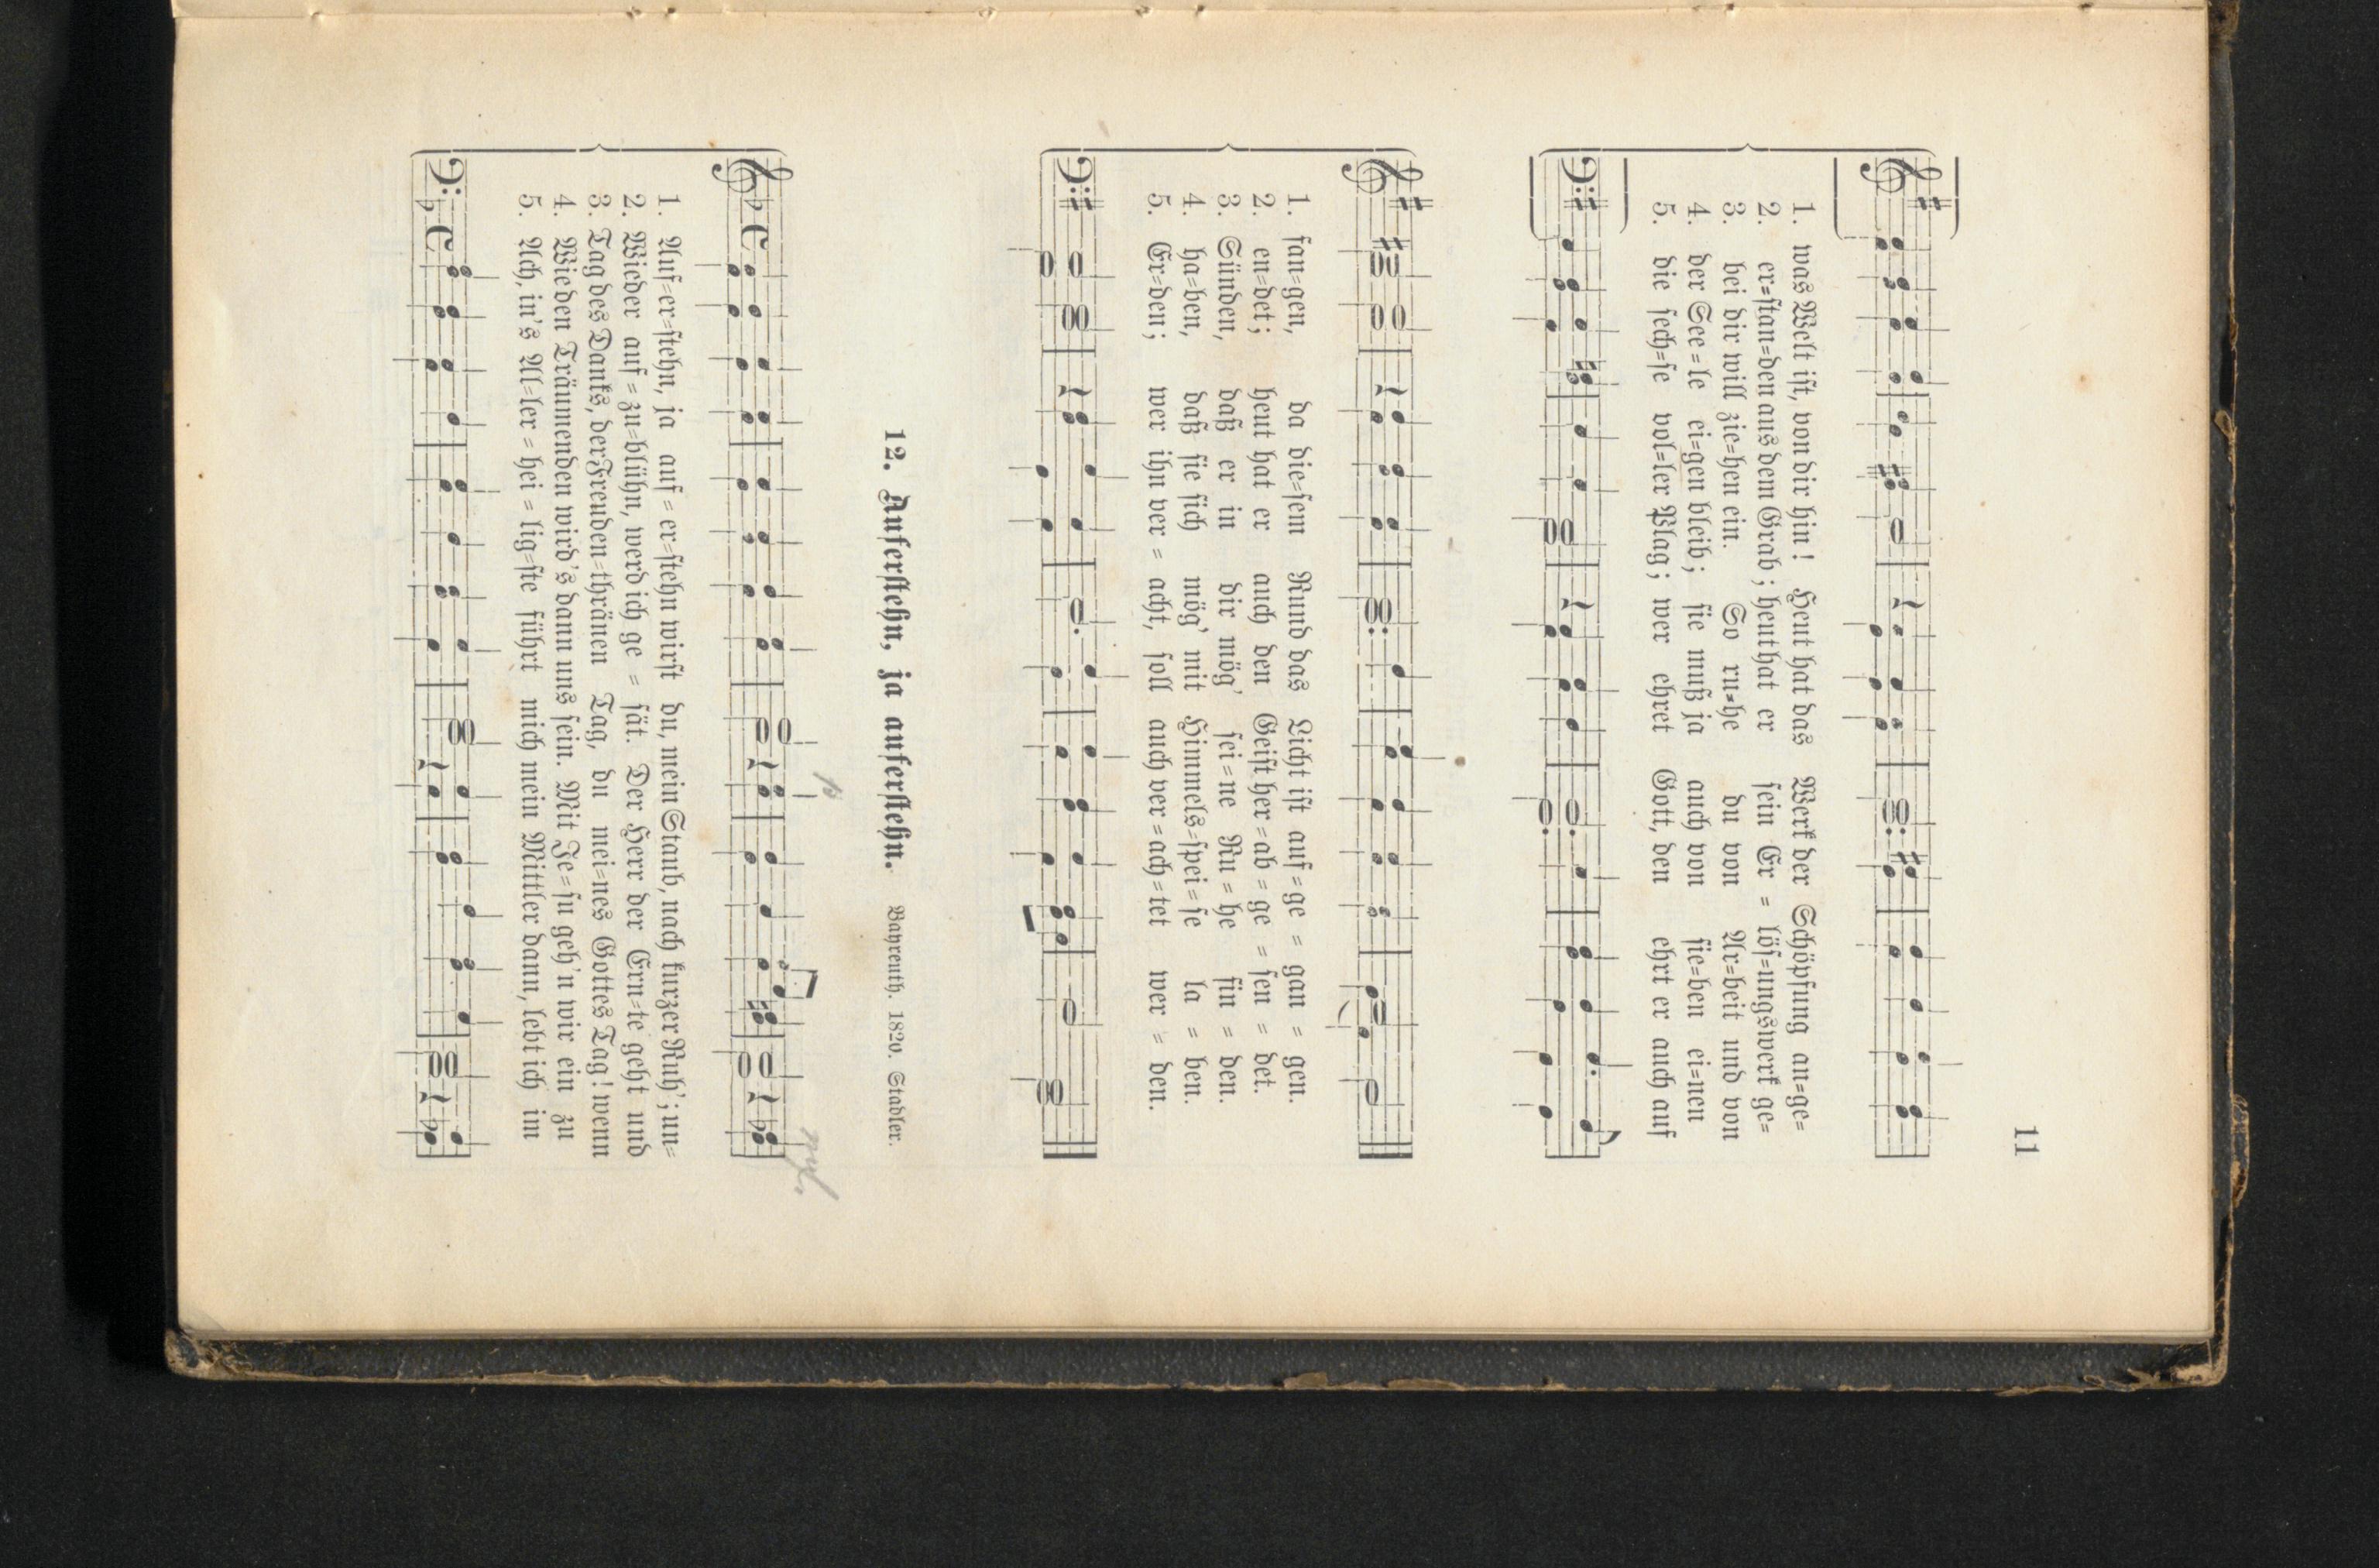 11
1. was Welt ist, von dir hin! Heut hat das Werk der Schöpfung an=ge=
2. er=stan=den aus dem Grab; heut hat er sein Er = lös=ungswerk ge=
3. bei dir will zie=hen ein. So ru=he du von Ar=beit und von
4. der See=le ei=gen bleib; sie muß ja auch von sie=ben ei=nen
5. die sech=se vol=ler Plag; wer ehret Gott, den ehrt er auch auf
1. fan=gen, da die=sem Rund das Licht ist auf=ge = gan = gen.
2. en=det; heut hat er auch den Geist her=ab=ge = sen = det.
3. Sünden, daß er in dir mög' sei=ne Ru = he fin = den.
4. ha=ben, daß sie sich mög' mit Himmels=spei=se la = ben.
5. Er=den; wer ihn ver = acht, soll auch ver=ach=tet wer = den.
12. Auferstehn, ja auferstehn. Bayreuth. 1820. Stadler.
p
1. Auf=er=stehn, ja auf = er=stehn wirst du, mein Staub, nach kurzer Ruh'; un=
2. Wieder auf = zu=blühn, werd ich ge = sät. Der Herr der Ern=te geht und
3. Tag des Danks, der Freuden=thränen Tag, du mei=nes Gottes Tag! wenn
4. Wie den Träumenden wird's dann uns sein. Mit Je=su geh'n wir ein zu
5. Ach, in's Al=ler = hei = lig=ste führt mich mein Mittler dann, lebt ich im